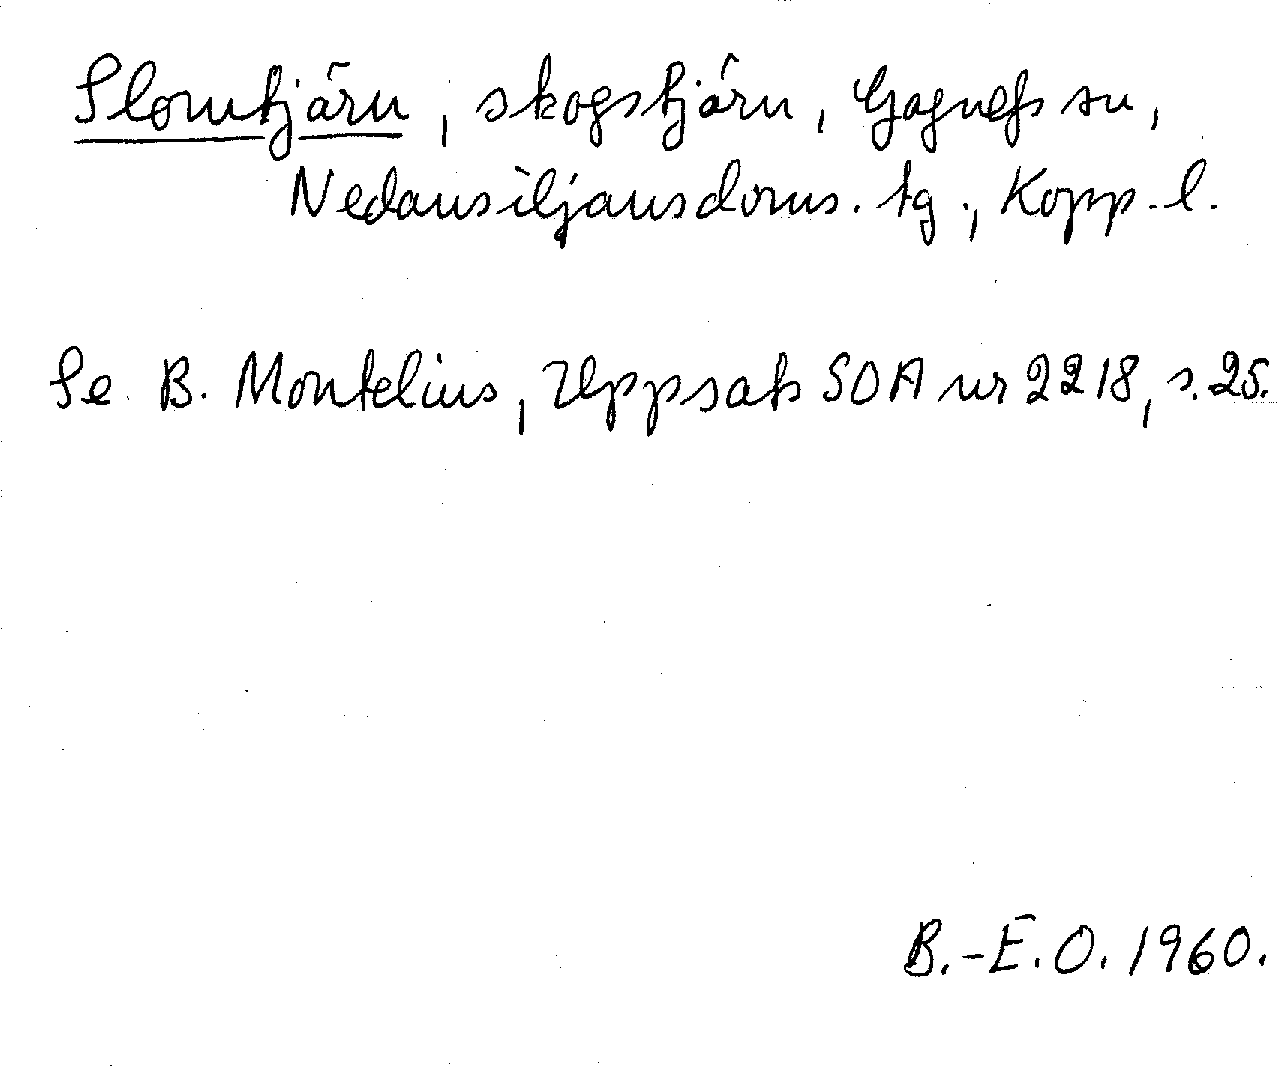 Slomtjärn, skogstjärn, Gagnefs sn,
Nedansiljans doms. tg., Kopp. l.
Se B. Montelius, Uppsats SOA nr 2218, s. 25.
B.-E. O. 1960.